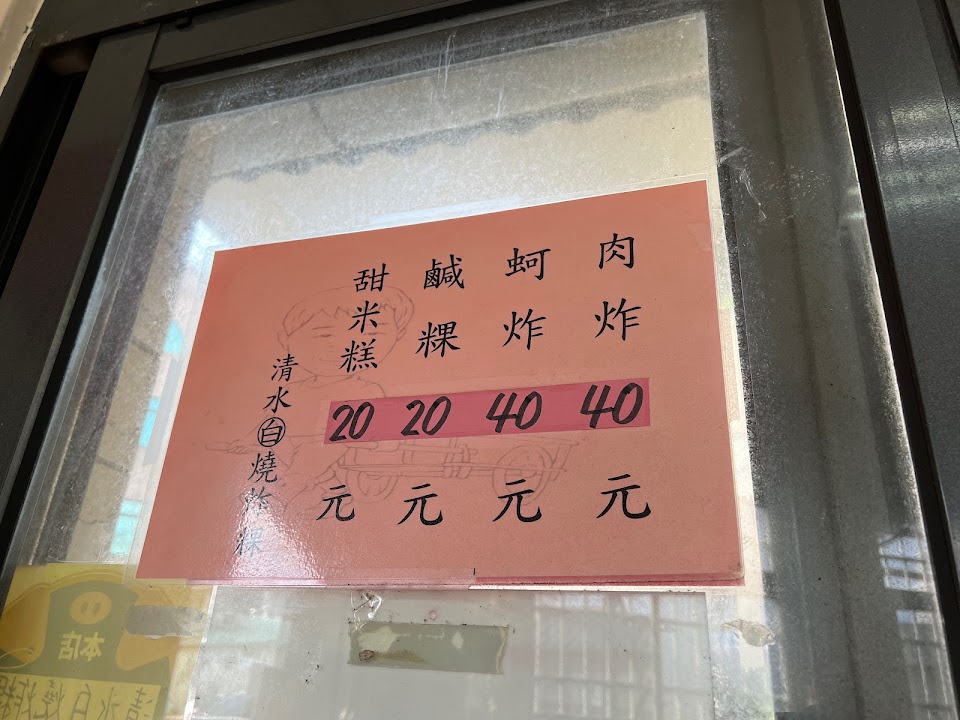 肉炸40元
蚵炸40元
鹹粿20元
甜米糕20元
清水自燒炸粿
本店